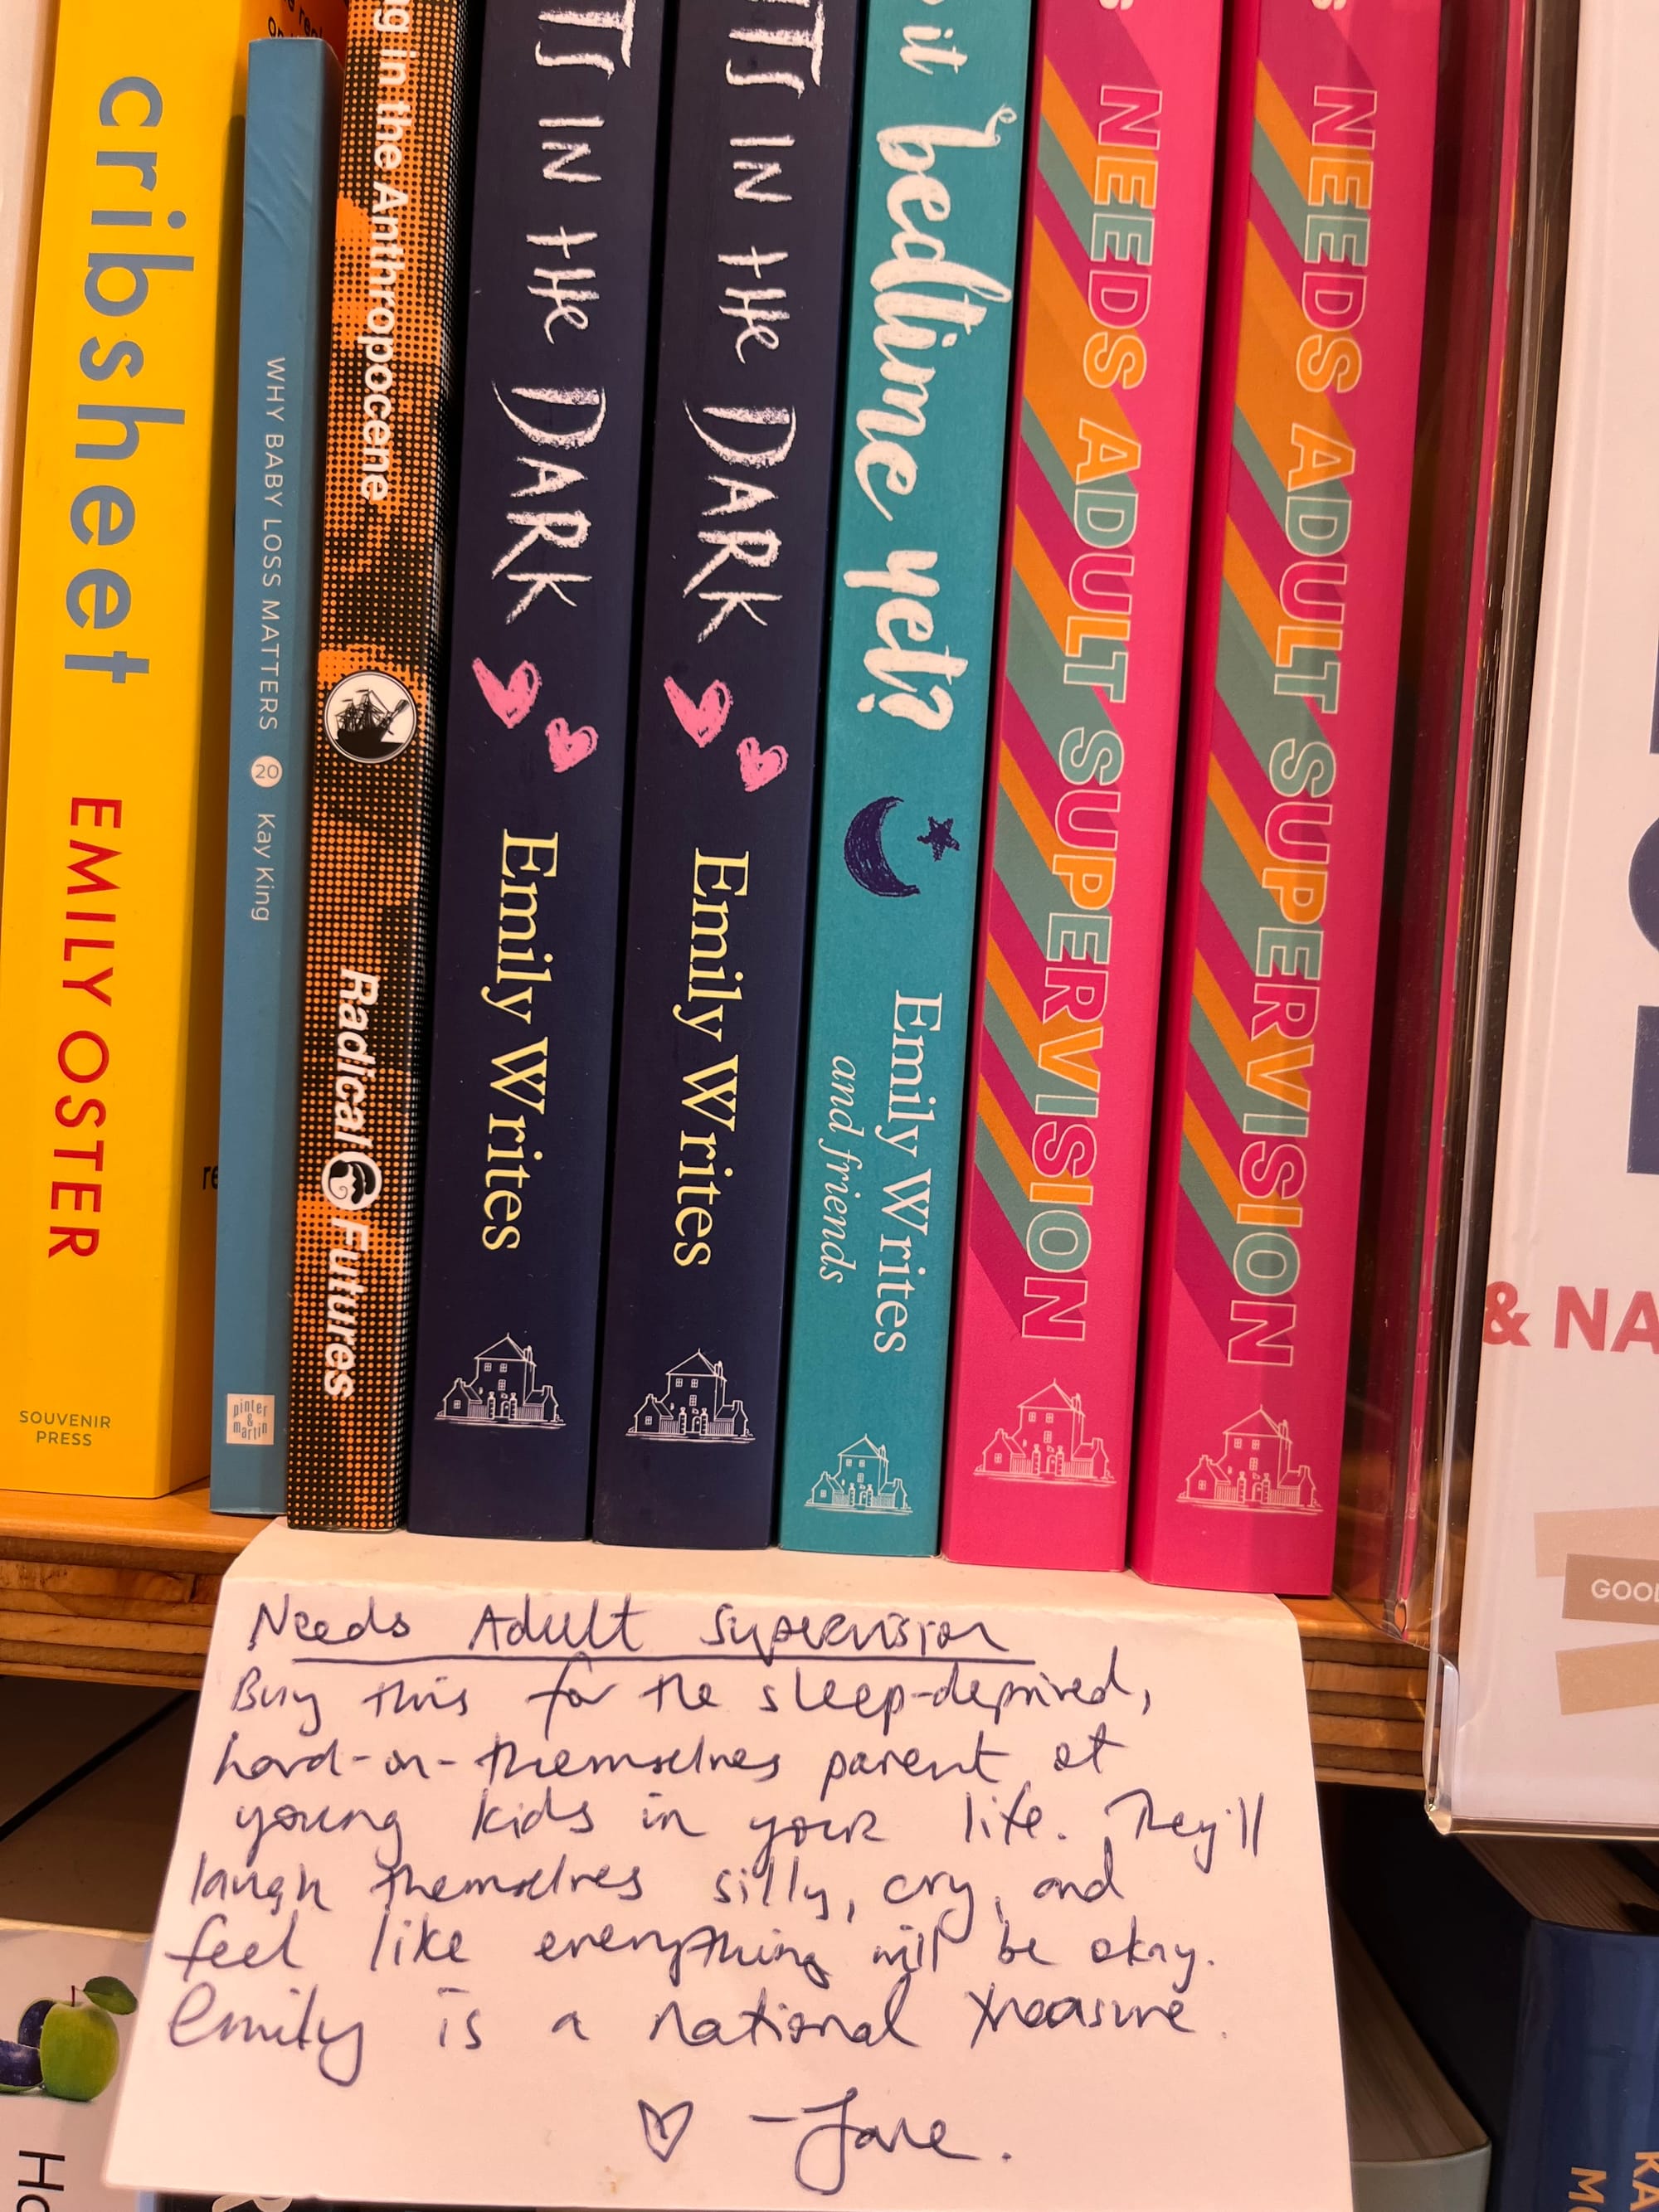 cribsheet EMILY OSTER
SOUVENIR
PRESS
WHY BABY LOSS MATTERS 20 Kay King
pinter
&
martin
in the Anthropocene Radical Futures
IN THE DARK Emily Writes
IN THE DARK Emily Writes
it bedtime yet? Emily Writes
and friends
NEEDS ADULT SUPERVISION
NEEDS ADULT SUPERVISION
& NA
Needs Adult Supervision
Buy this for the sleep-deprived,
hard-on-themselves parent of
young kids in your life. They'll
laugh themselves silly, cry, and
feel like everything will be okay.
Emily is a national treasure.
♡ - Jane.